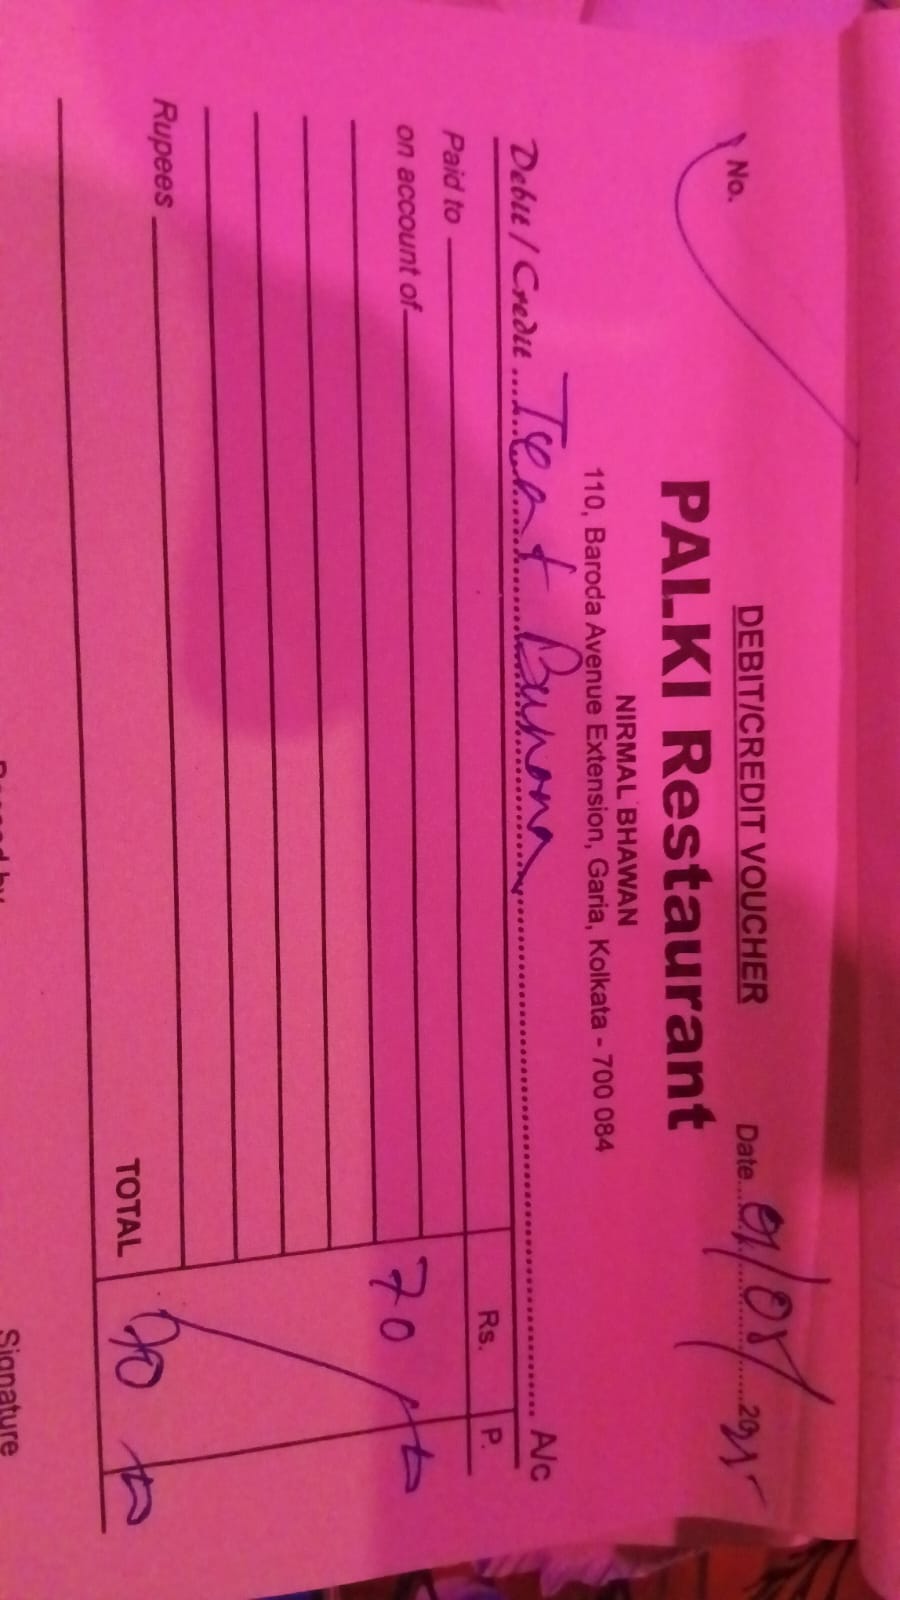 DEBIT/CREDIT VOUCHER
No. Date 01/08/2025
PALKI Restaurant
NIRMAL BHAWAN
110, Baroda Avenue Extension, Garia, Kolkata - 700 084
Debit / Credit A/c
Rs. P.
Paid to
on account of 70
Rupees
TOTAL 70
Signature